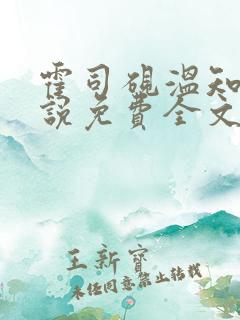 霍司砚温知
說免費全文
王新寶
未经同意禁止转载